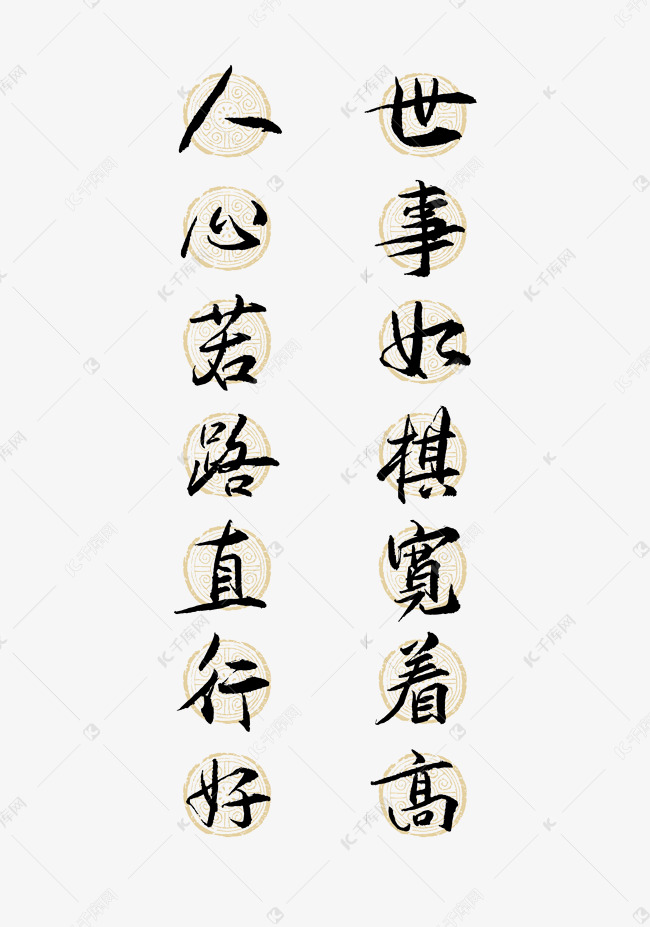 世事如棋寬着高
人心若路直行好
千库网